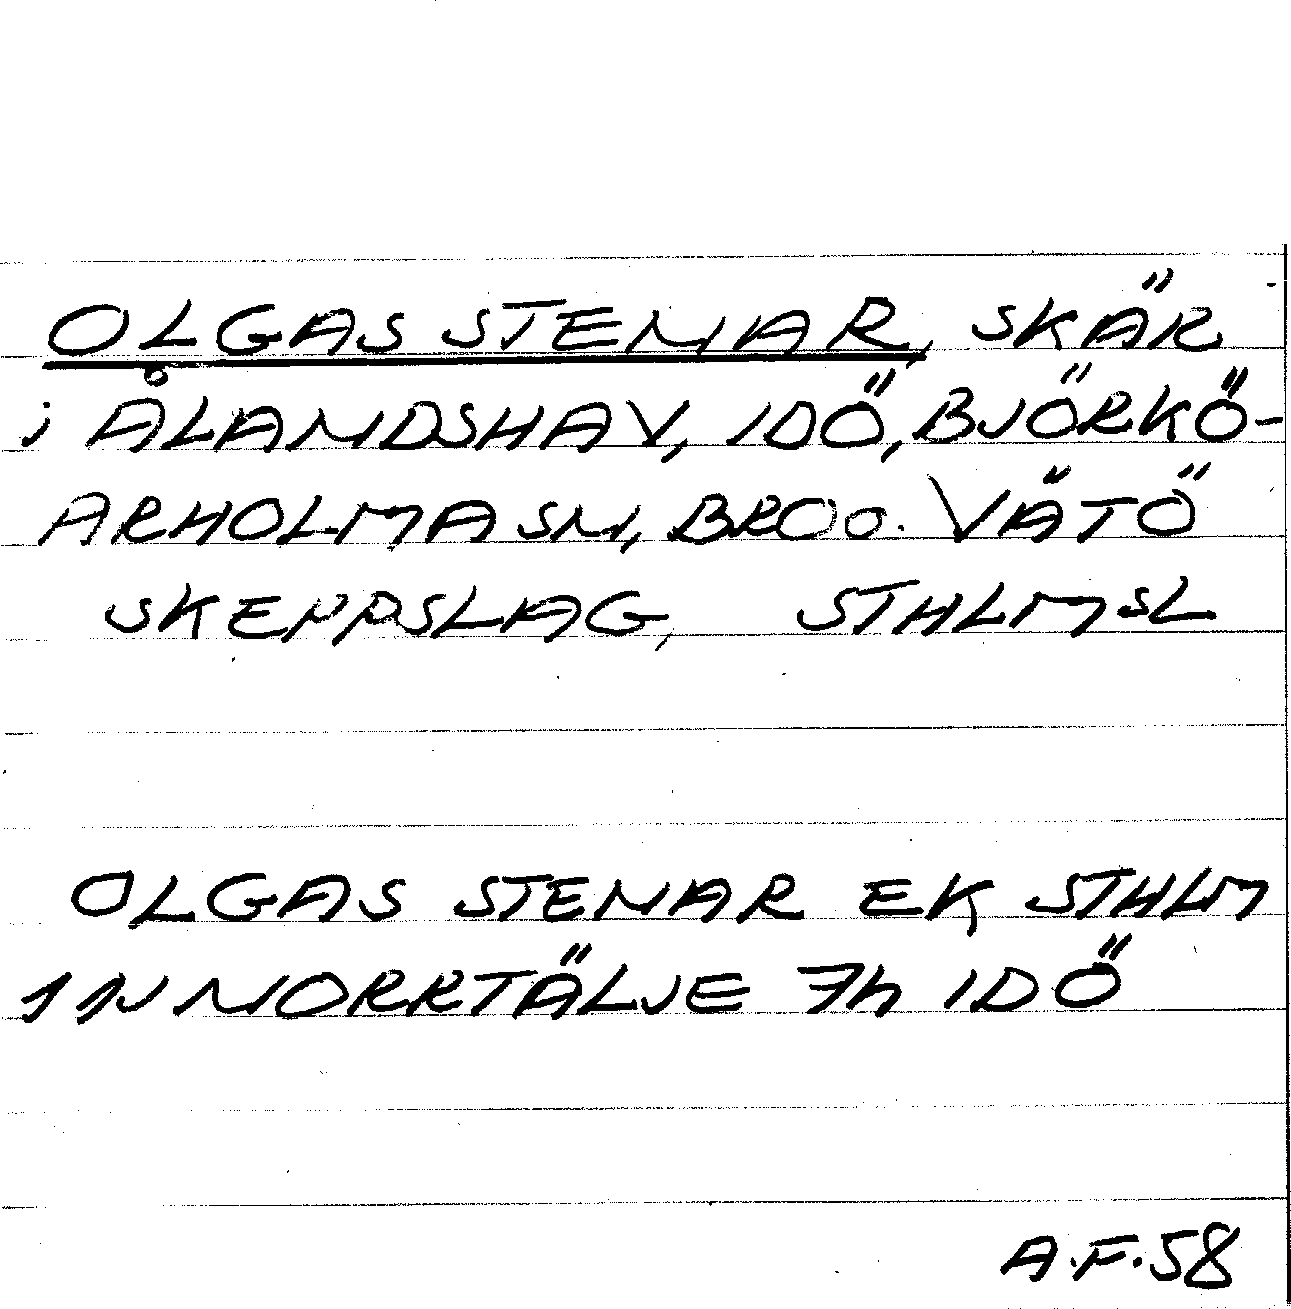 OLGAS STENAR, SKÄR
i ÅLANDSHAV, IDÖ, BJÖRKÖ-
ARHOLMA SN, BRO o. VÄTÖ
SKEPPSLAG, STHLMSL
OLGAS STENAR EK STHLM
11N NORRTÄLJE 7h IDÖ
A.F.58